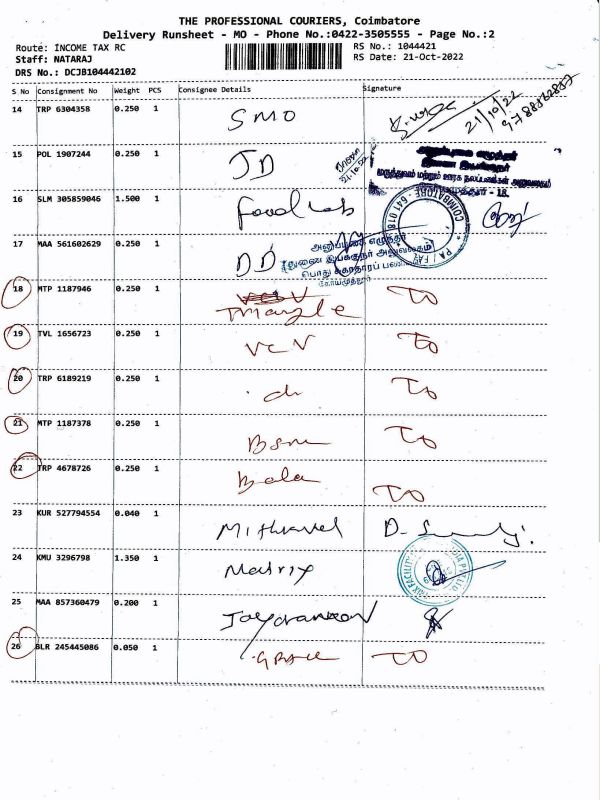 THE PROFESSIONAL COURIERS, Coimbatore
Delivery Runsheet - MO - Phone No.:0422-3505555 - Page No.:2
Route: INCOME TAX RC
RS No.: 1044421
Staff: NATARAJ
RS Date: 21-Oct-2022
DRS No.: DCJB104442102
S No Consignment No Weight PCS Consignee Details Signature
14 TRP 6304358 0.250 1 SMO 21/10/22
15 POL 1907244 0.250 1 JD
16 SLM 305859046 1.500 1 Food Lab
COIMBATORE - 641 018
17 MAA 561602629 0.250 1 DD
பொது சுகாதாரப்
கோயமுத்தூர்
18 MTP 1187946 0.250 1 TO
19 TVL 1656723 0.250 1 VCV TO
20 TRP 6189219 0.250 1 TO
21 MTP 1187378 0.250 1 TO
22 TRP 4678726 0.250 1 Bala TO
23 KUR 527794554 0.040 1
24 KMU 3296798 1.350 1 Matrix
25 MAA 857360479 0.200 1
26 BLR 245445086 0.050 1 GRACE TO